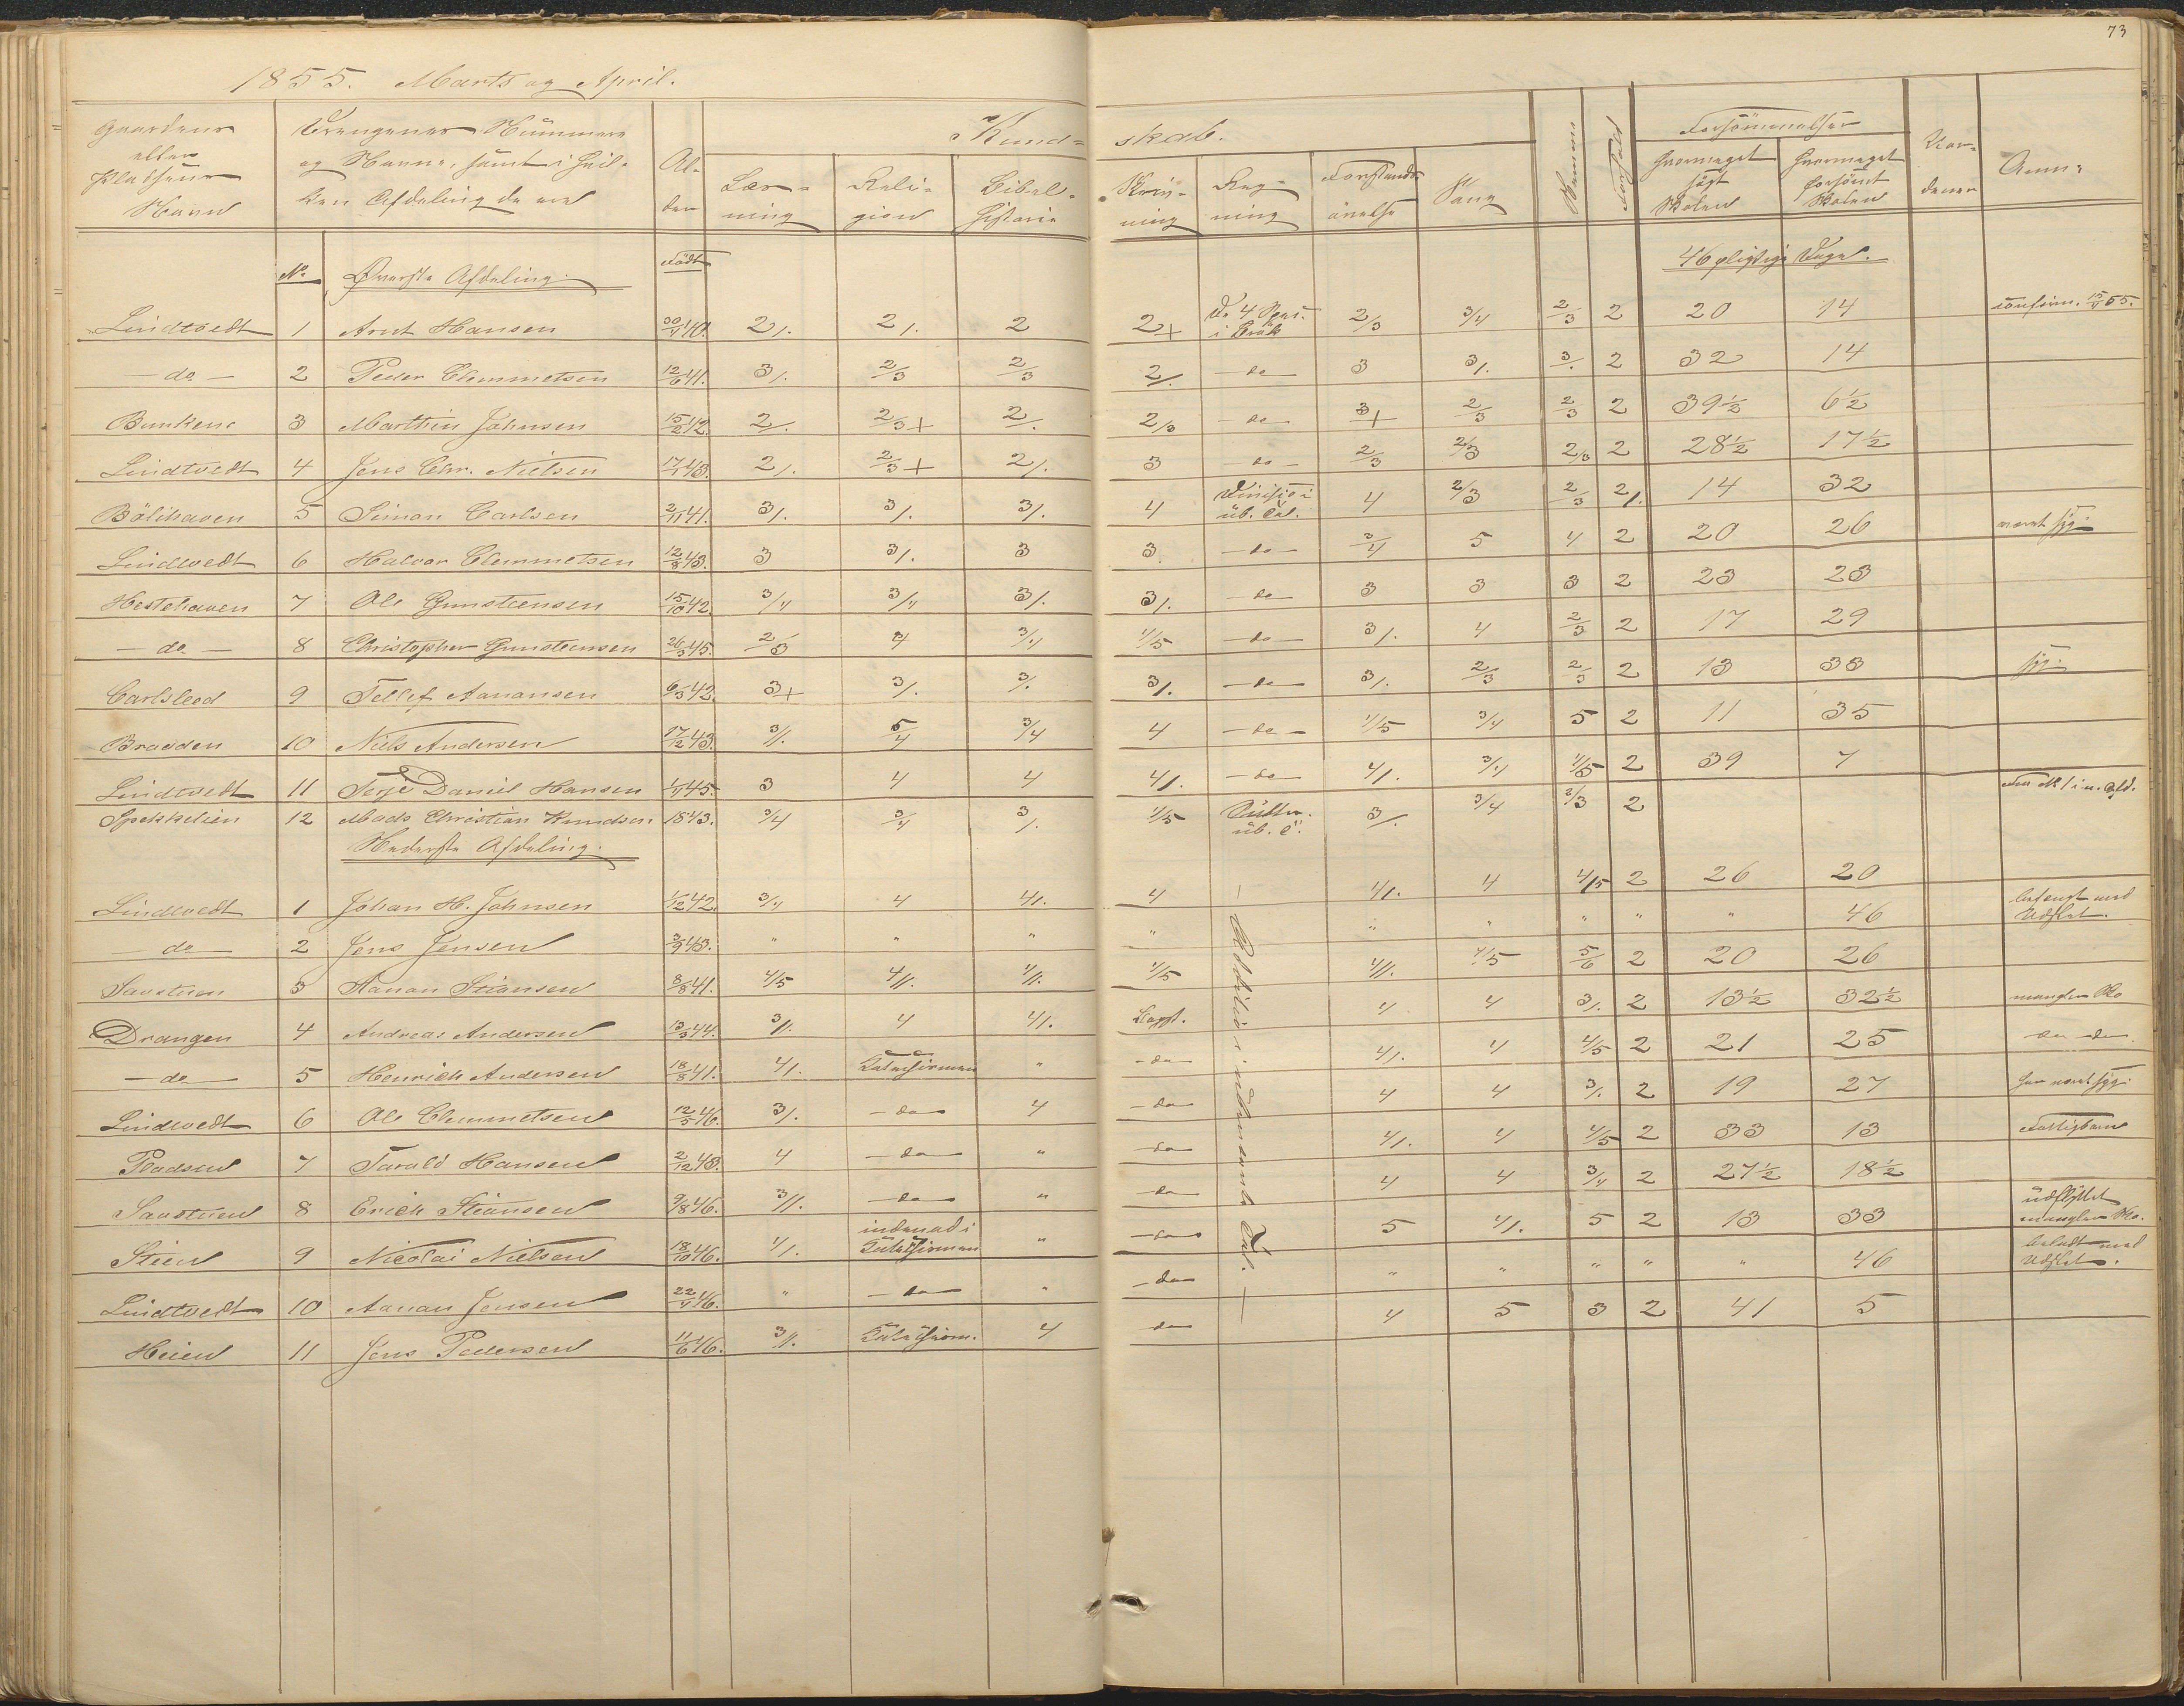 73
1855. Marts og April.
Gaardens eller Pladsens Navn | Drengenes Nummere og Navne, samt i hvilken Afdeling de ere | Alder | Kundskab. | Nemme | Forhold | Forsömmelser | Anm:
Læsning | Religion | Bibelhistorie | Skrivning | Regning | Forstandsövelse | Sang | hvormeget sögt Skolen | hvormeget forsömt Skolen
No | Överste Afdeling. | Födt | 46 pligtige Dage.
Lindtvedt | 1 | Arnt Hansen | 30/4 40. | 2/. | 2/. | 2 | 2+ | De 4 Spec. i Brök | 2/3 | 3/4 | 2/3 | 2 | 20 | 14 | confirm. 15/4 55.
- do - | 2 | Peder Clemmetsen | 12/6 41. | 3/. | 2/3 | 2/3 | 2/. | - do - | 3 | 3/. | 3/. | 2 | 32 | 14
Bunkene | 3 | Marthin Johnsen | 15/2 42. | 2/. | 2/3+ | 2/. | 2/3 | - do - | 3+ | 2/3 | 2/3 | 2 | 39½ | 6½
Lindtvedt | 4 | Jens Chr. Nielsen | 17/1 43. | 2/. | 2/3+ | 2/. | 3 | - do - | 2/3 | 2/3 | 2/3 | 2 | 28½ | 17½
Bölihaven | 5 | Simon Carlsen | 2/11 41. | 3/. | 3/. | 3/. | 4 | Division i üb. Tal. | 4 | 2/3 | 2/3 | 2/. | 14 | 32
Lindtvedt | 6 | Halvor Clemmetsen | 12/8 43. | 3 | 3/. | 3 | 3 | - do - | 3/4 | 5 | 4 | 2 | 20 | 26 | været syg
Hestehaven | 7 | Ole Gunsteensen | 15/10 42. | 3/4 | 3/4 | 3/. | 3/. | - do - | 3 | 3 | 3 | 2 | 23 | 23
- do - | 8 | Christopher Gunsteensen | 26/3 45. | 2/3 | 4 | 3/4 | 4/5 | - do - | 3/. | 4 | 2/3 | 2 | 17 | 29
Carlsleod | 9 | Tellef Aanansen | 6/3 42. | 3+ | 3/. | 3/. | 3/. | - do - | 3/. | 2/3 | 2/3 | 2 | 13 | 33 | syg.
Brodden | 10 | Niels Andersen | 17/12 43. | 3//. | 5/4 | 3/4 | 4 | - do - | 4/5 | 3/4 | 5 | 2 | 11 | 35
Lindtvedt | 11 | Terje Daniel Hansen | 1/1 45. | 3 | 4 | 4 | 4/. | - do | 4/. | 3/4 | 4/5 | 2 | 39 | 7
Spekkelien | 12 | Mads Christian Knudsen | 1843. | 3/4 | 3/4 | 3/. | 4/5 | 3/. | 3/4 | 2/3 | 2 | Fra No 1 i n. Afd.
Nederste Afdeling.
Lindtvedt | 1 | Johan H. Johnsen | 1/12 42. | 3/4 | 4 | 4/. | 4 | 4/. | 4 | 4/5 | 2 | 26 | 20
- do - | 2 | Jens Jensen | 3/9 43. | " | " | " | " | " | " | " | " | " | 46 | befængt med Udslet.
Saustuen | 3 | Aanan Stiansen | 8/8 41. | 4/5 | 4//. | 4//. | 4/5 | 4//. | 4/5 | 5/6 | 2 | 20 | 26
Drangen | 4 | Andreas Andersen | 13/3 44. | 3//. | 4 | 4/. | 4 | 4 | 3/. | 2 | 13½ | 32½ | mangler Sko
- do - | 5 | Henrich Andersen | 18/8 41. | 4/. | Katechismen | " | - do | 4/. | 4 | 4/5 | 2 | 21 | 25 | do do
Lindtvedt | 6 | Ole Clemmetsen | 12/5 46. | 3/. | - do - | 4 | - do | 4 | 4 | 3/. | 2 | 19 | 27 | har været syg
Pladsen | 7 | Tarald Hansen | 2/12 43. | 4 | - do - | " | do | 4/. | 4 | 4/5 | 2 | 33 | 13 | Fattigbarn
Saustuen | 8 | Erich Stiansen | 9/8 46. | 3//. | - do - | " | do | 4 | 4 | 3/4 | 2 | 27½ | 18½
Stien | 9 | Nicolai Nielsen | 18/10 46. | 4/. | indenad i Katechismen | " | - do | 5 | 4/. | 5 | 2 | 13 | 33 | udflyttet mangler Sko.
Lindtvedt | 10 | Aanan Jensen | 22/4 46. | " | - do - | " | - do | " | " | " | " | " | 46 | med Udslet.
Heien | 11 | Jens Pedersen | 11/6 46. | 3//. | Katechism. | 4 | do | 4 | 5 | 3 | 2 | 41 | 5
- Addition i Tal. -